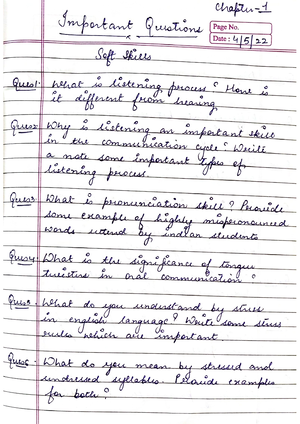 Chapter-1
Important Questions
Page No.
Date: 4/5/22
Soft Skills
Ques1: What is listening process? How is
it different from hearing
Ques2 Why is listening an important skill
in the communication cycle? Write
a note some important types of
listening process.
Ques3 What is pronunciation skill? Provide
some example of highly mispronounced
words uttered by indian students
Ques4 What is the significance of tongue
twisters in oral communication?
Ques5 What do you understand by stress
in english language? Write some stress
rules which are important
Ques6 - What do you mean by stressed and
unstressed syllables. Provide examples
for both?